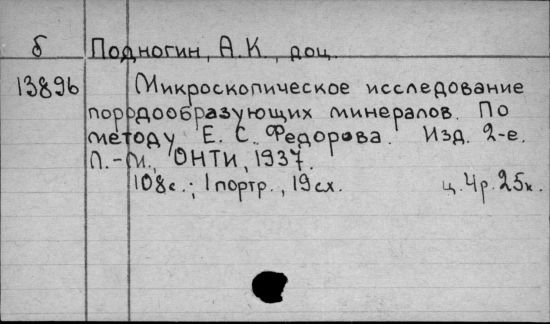 б Подногин, А.К., доц.
13896 Микроскопическое исследование
поррдообразующих минералов. По
методу Е. С. Федорова. Изд. 2-е.
Л.-М., ОНТИ, 1937.
108с.; 1 портр., 19 сх. ц. 4р. 25к.